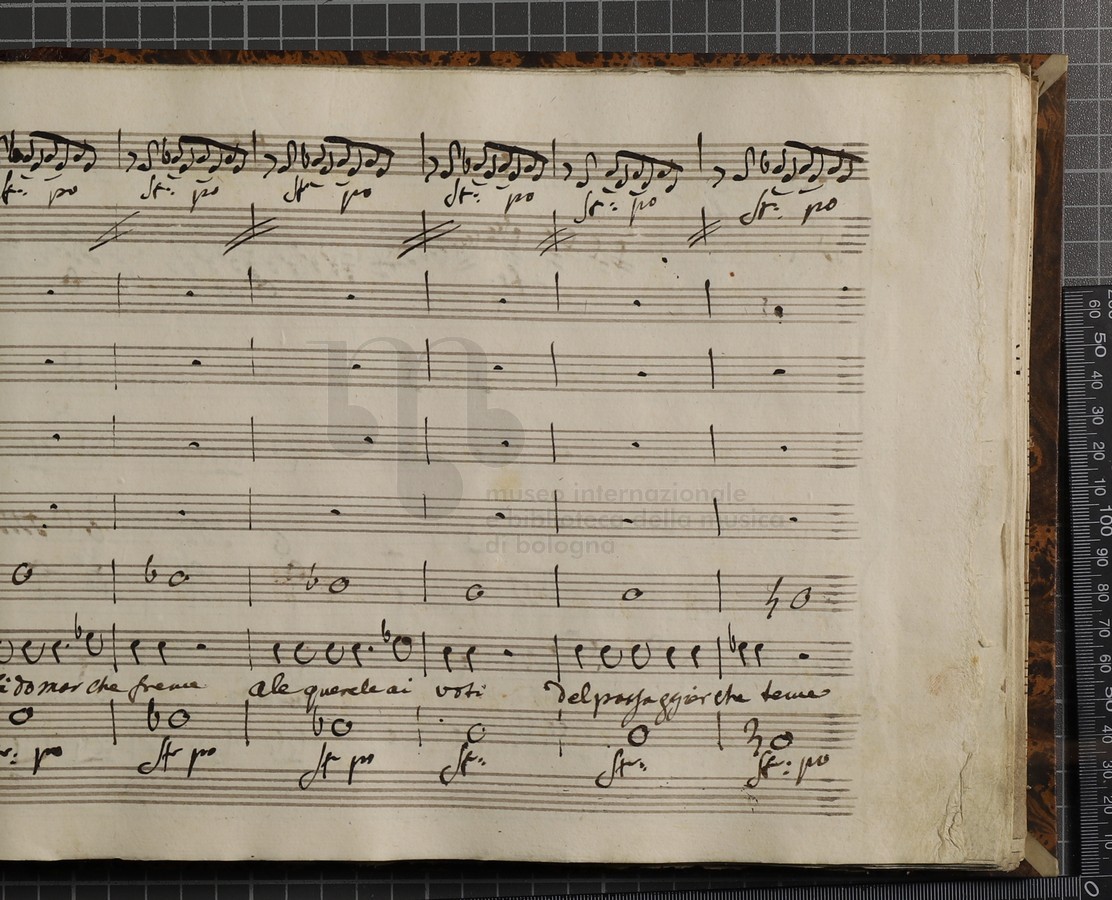 str: po str: po str po str: po str: po str: po
museo internazionale
e biblioteca della musica
di bologna
di do mar che freme ale querele ai voti del passaggier che teme
str: po str po str po str: str: str: po
60 50 40 30 20 10 100 90 80 70 60 50 40 30 20 10 0